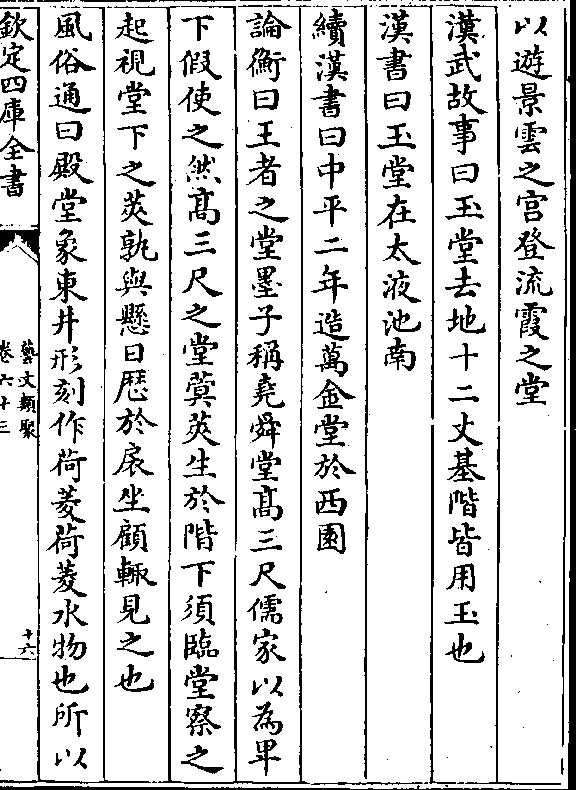 以遊景雲之宫登流霞之堂
漢武故事曰玉堂去地十二丈基階皆用玉也
漢書曰玉堂在太液池南
續漢書曰中平二年造萬金堂於西園
論衡曰王者之堂墨子稱堯舜堂髙三尺儒家以為卑
下假使之然髙三尺之堂蓂莢生於階下須臨堂察之
起視堂下之莢孰與懸日厯於扆坐顧輙見之也
風俗通曰殿堂象東井形刻作荷菱荷菱水物也所以
欽定四庫全書
藝文類聚
卷六十三
十六